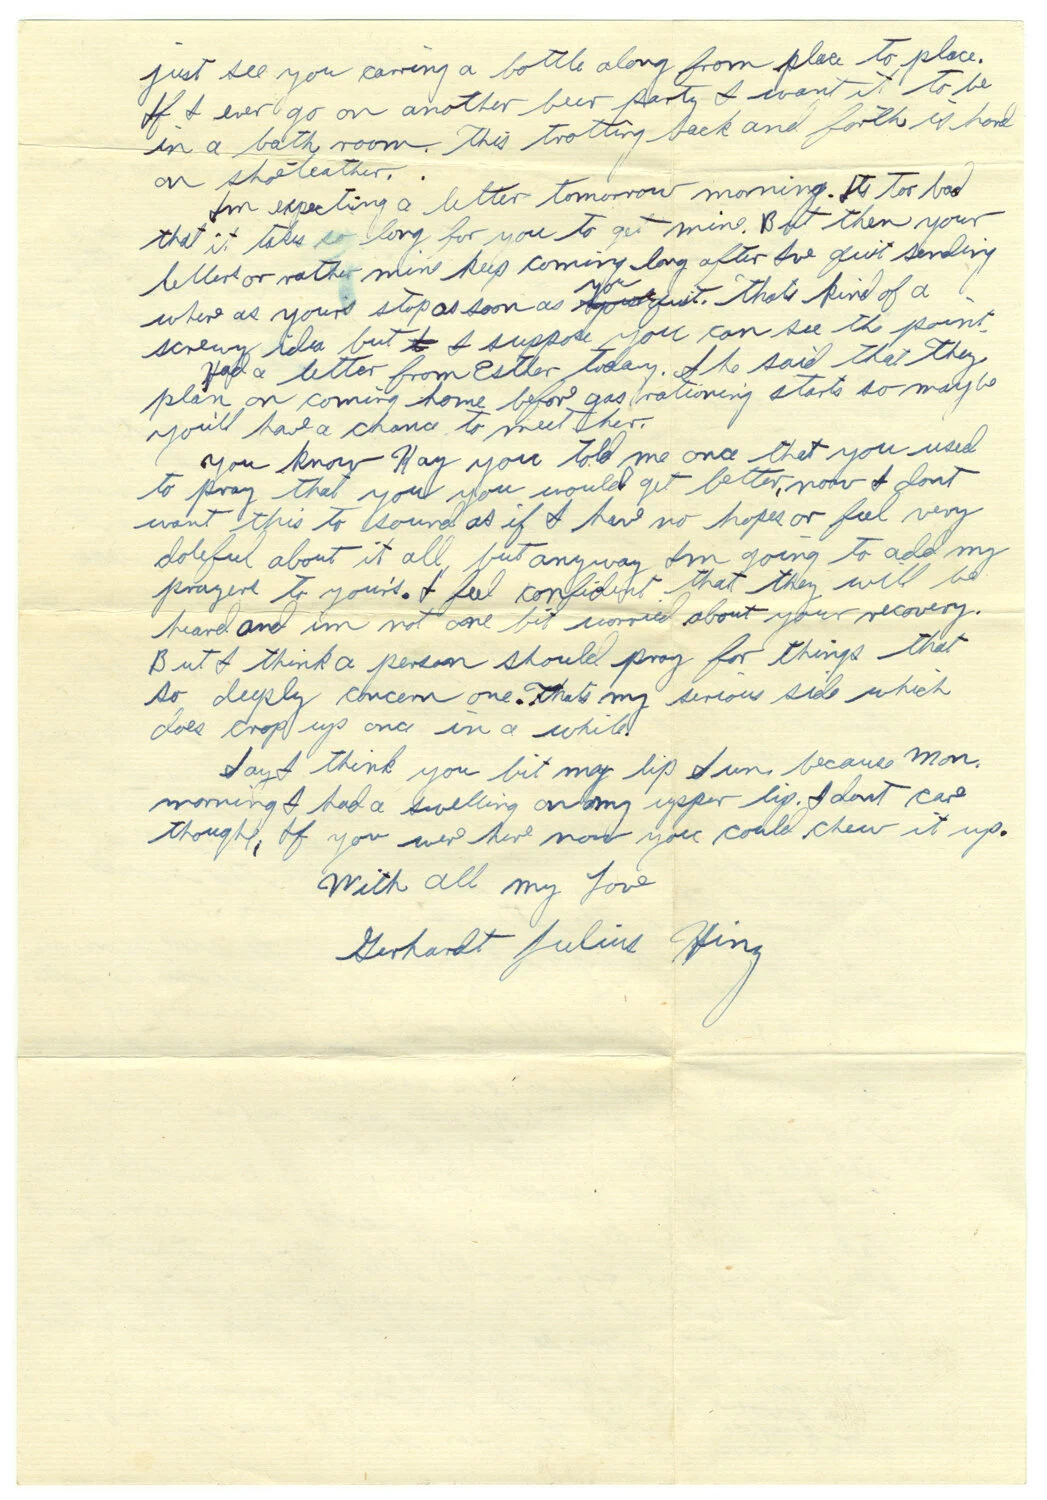 just see you carring a bottle along from place to place.
If I ever go on another beer party I want it to be
in a bath room. This trotting back and forth is hard
on shoeleather.
Im expecting a letter tomorrow morning. Its Too bad
that it takes so long for you to get mine. But then your
letters or rather mine keep coming long after I've quit sending
where as your's stop as soon as you quit. That's kind of a
screwy idea but I suppose you can see the point.
Had a letter from Esther today. She said that they
plan on coming home before gas rationing starts so maybe
you'll have a chance to meet her.
You know Hay you told me once that you used
to pray that you you would get better, now I dont
want this to sound as if I have no hopes or feel very
doleful about it all, but anyway Im going to add my
prayers to your's. I feel confident that they will be
heard and im not one bit worried about your recovery.
But I think a person should pray for things that
so deeply concern one. Thats my serious side which
does crop up once in a while.
Say I think you bit my lip Sun. because Mon.
morning I had a swelling on my upper lip. I dont care
though, If you were here now you could chew it up.
With all my Love
Gerhardt Julius Hinz